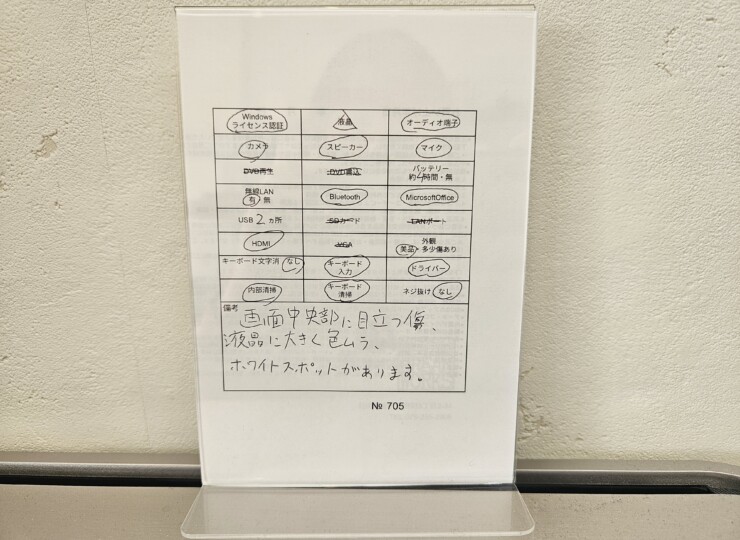 Windows
ライセンス認証
液晶
オーディオ端子
カメラ
スピーカー
マイク
DVD再生
DVD書込
バッテリー
約4時間・無
無線LAN
有・無
Bluetooth
MicrosoftOffice
USB 2 ヵ所
SDカード
LANポート
HDMI
VGA
外観
美品・多少傷あり
キーボード文字消 なし
キーボード
入力
ドライバー
内部清掃
キーボード
清掃
ネジ抜け なし
備考
画面中央部に目立つ傷、
液晶に大きく色ムラ、
ホワイトスポットがあります。
№ 705